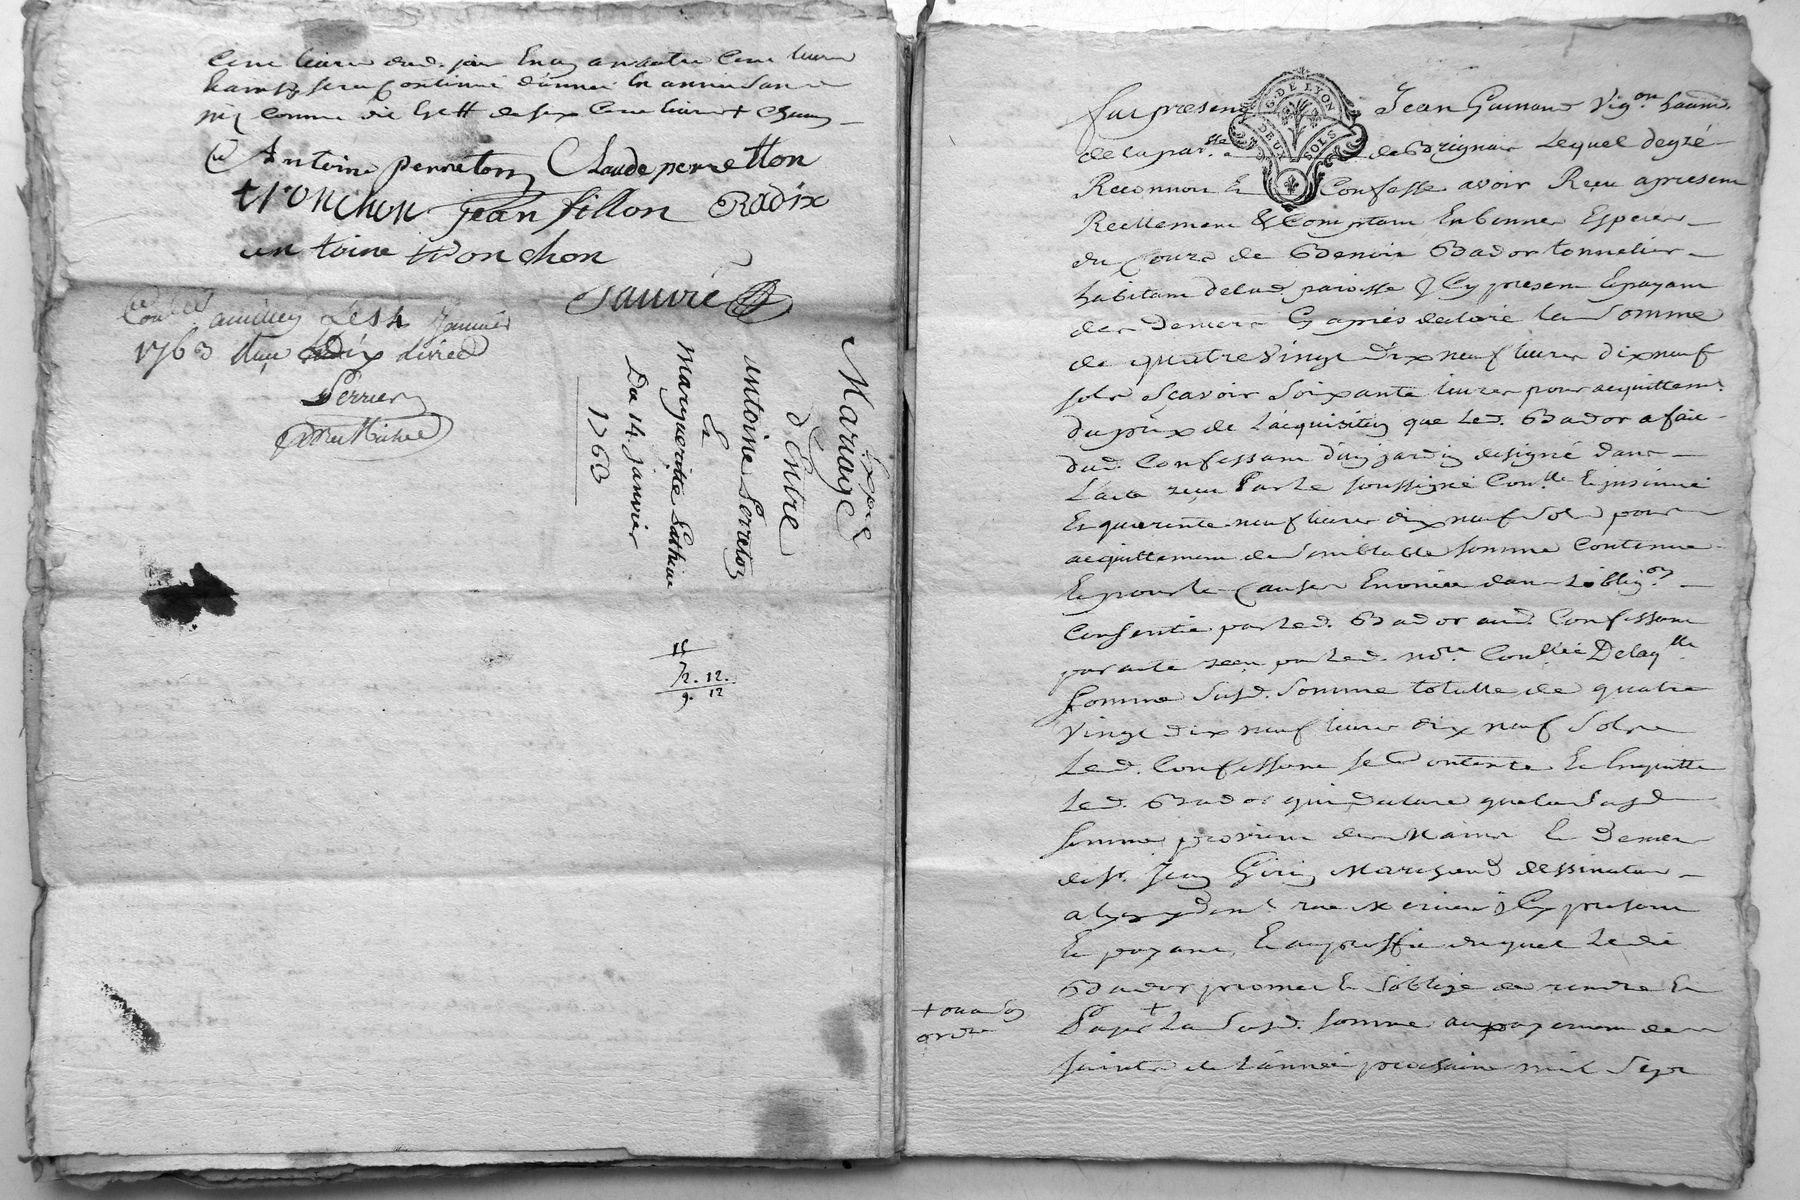 Cent livres dud. jour En un an autre Cent livres
Et ainsy sera Continué d'année En année Sans
Antoine perreton Claude perretton
tronchon jean fillon Radix
antoine tronchon
Sauvré
Con.lé le 14 Janvier
1763 Reçu dix livres
Perrier
Exped.
Marriage
d'Entre
antoine perreton
Et
Marguerite
Du 14. janvier
1763
7. 12.
9. 12
G. DE LYON
DEUX SOLS
fut present Jean Guinand vig.on habit.
de la par.sse de Brignais Lequel de gré
Reconnoit Et Confesse avoir Reçu a present
Reellement & Comptant En bonnes Especes
du Cours de Benoit Bador tonnelier
habitant de lad. paroisse ycy present Et payant
des Deniers Cy après declaré la Somme
de quatre Vingt Dix neuf livres dix neuf
sols Sçavoir Soixante livres pour acquittem.t
du prix de L'acquisition que Led. Bador a fait
dud. Confessant d'un jardin designé dans
L'acte reçu Par Le soussigné Con.llé Et insinué
Et quarente neuf livres dix neuf Sols pour
acquittement de Semblable somme Contenue
Et pour les Causes Enoncée dans L'oblig.on
Consentie par Led. Bador aud. Confessant
par acte reçu par Led. no.re Con.llée De laq.lle
somme Susd. Somme totalle de quatre
Vingt dix neuf livres dix neuf Sols
Led. Confessant Se Contente Et En quitte
Led. Bador qui declare que la Susd.
Somme provient des Mains Et Deniers
de Sr. Jean Girin Marchand dessinateur
a Lyon y dem.t rue Merciere ycy present
Et payant, Et au proffit duquel Ledit
Bador promet Et S'oblige de rendre Et
+ ou a son
ordre
Payer + La Susd. somme au payement des
saints de L'année prochaine mil Sept